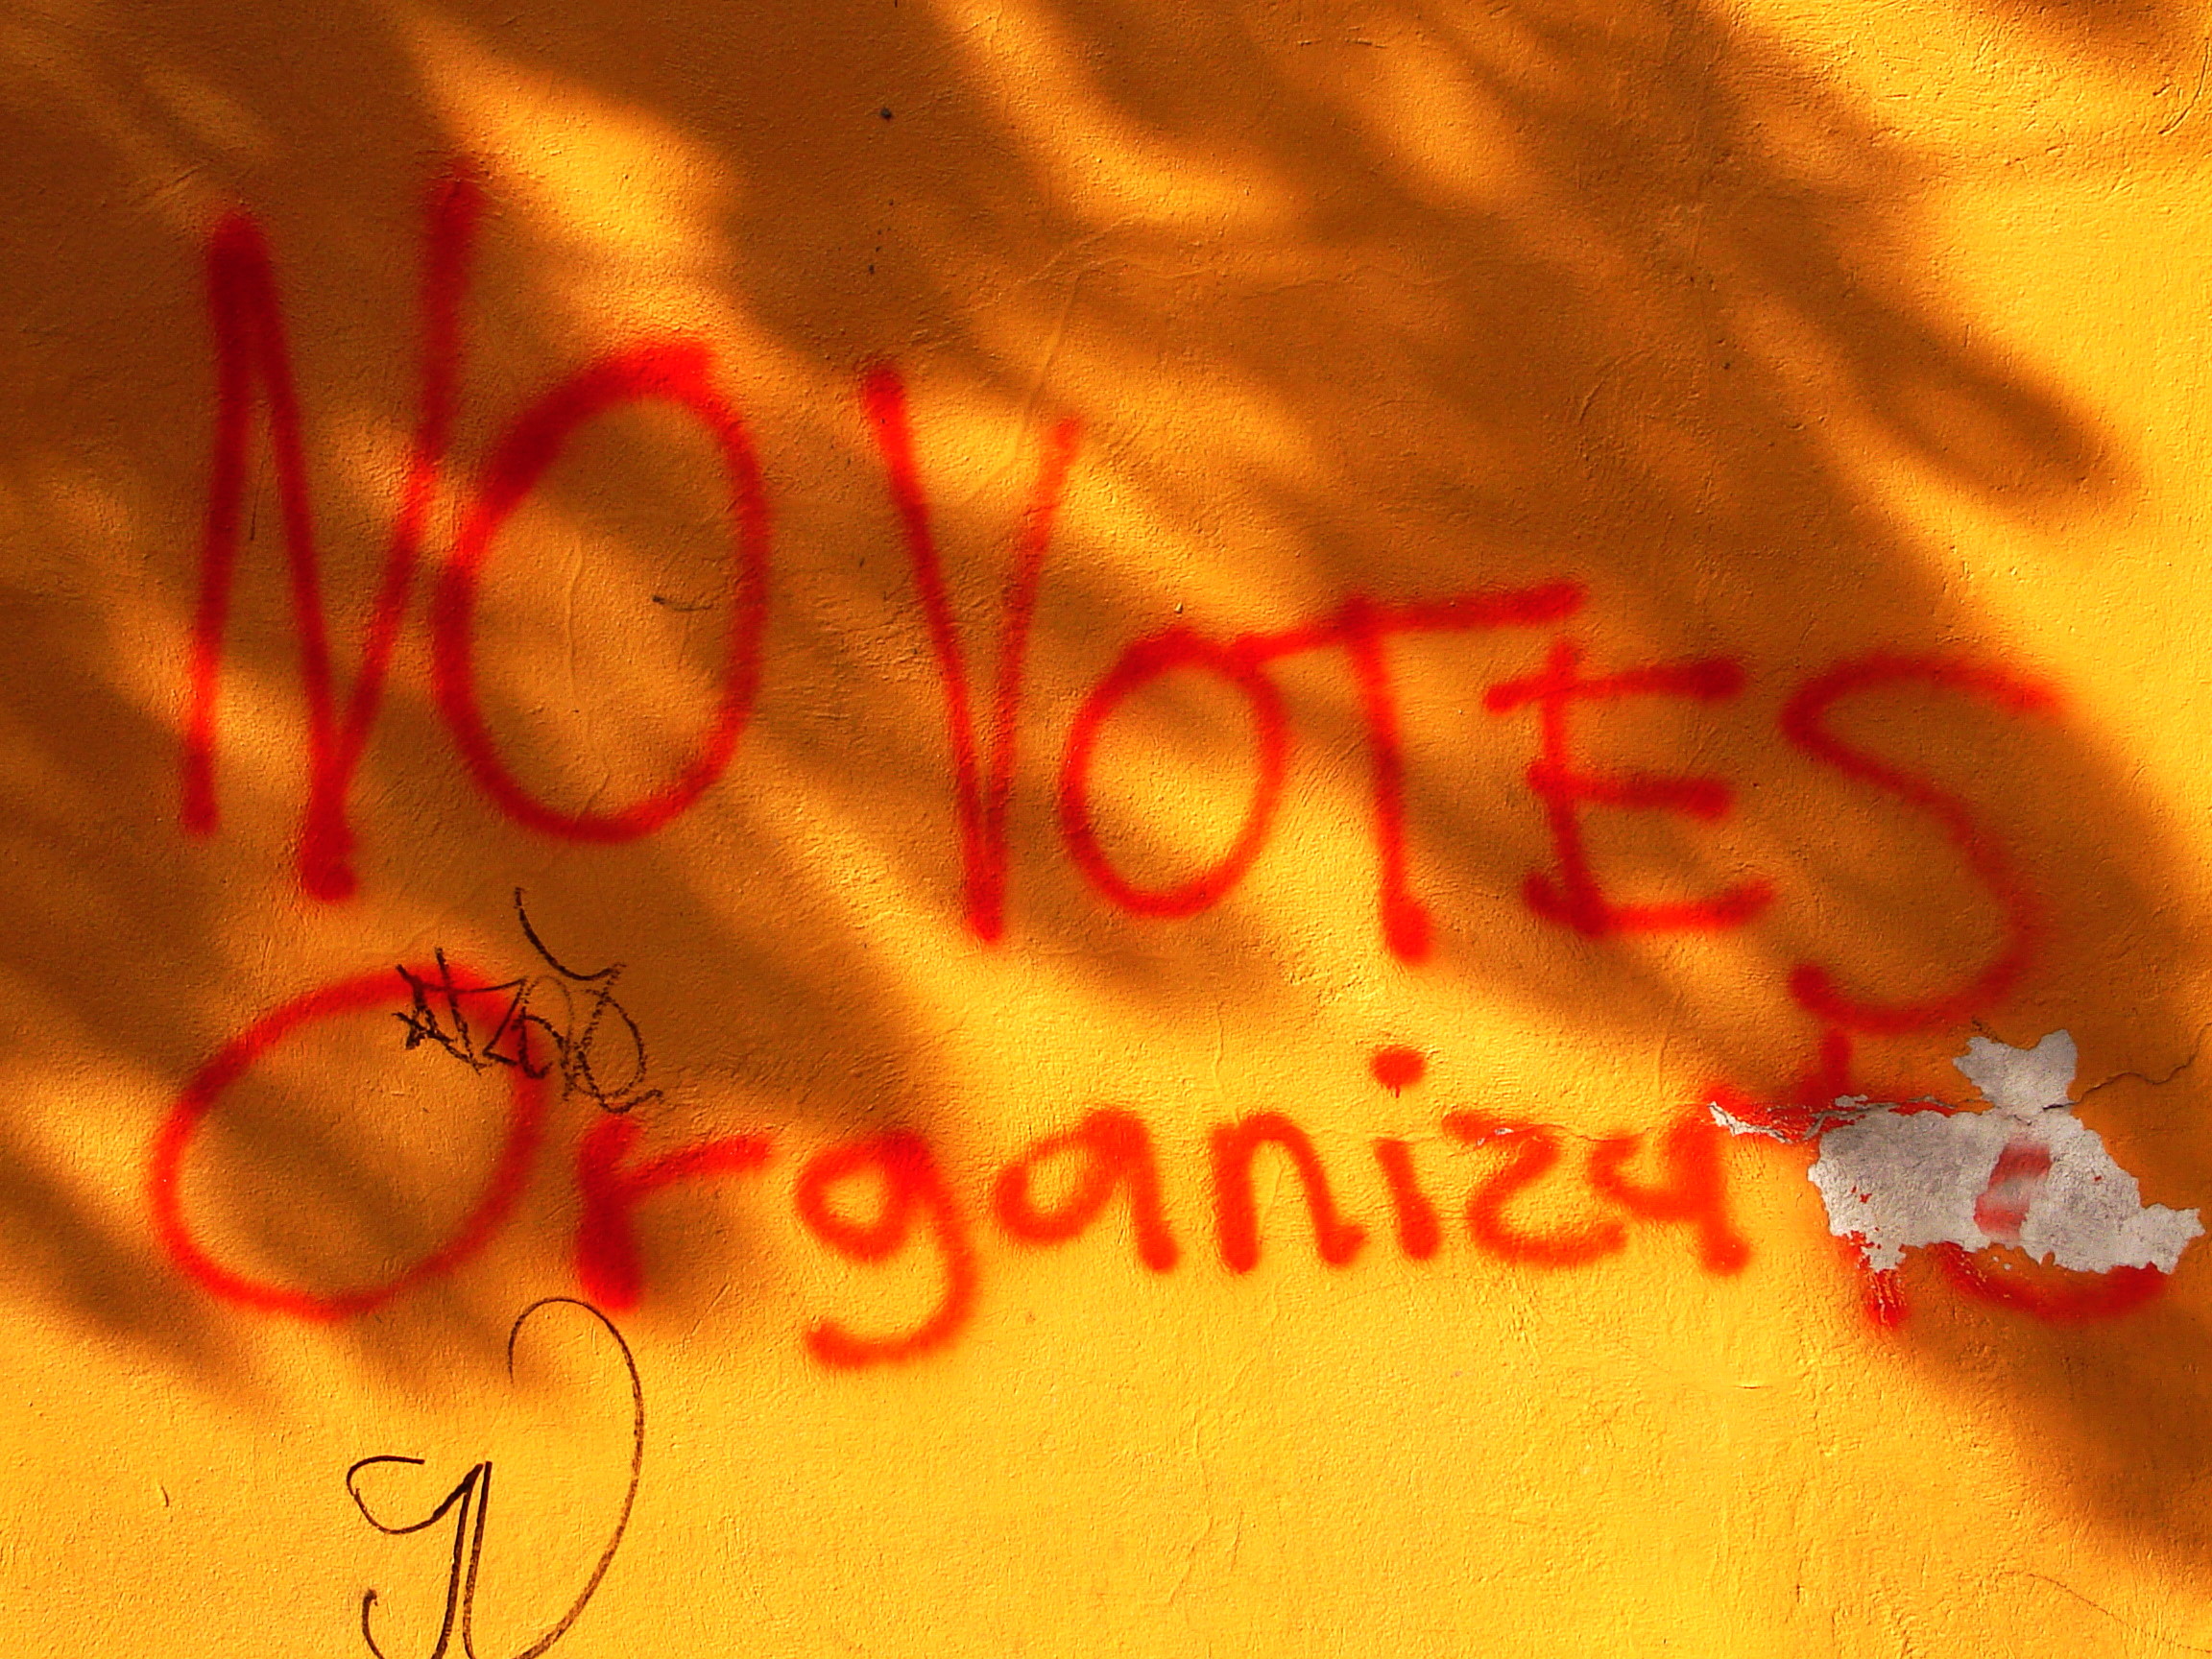 NO VOTES
Organizate